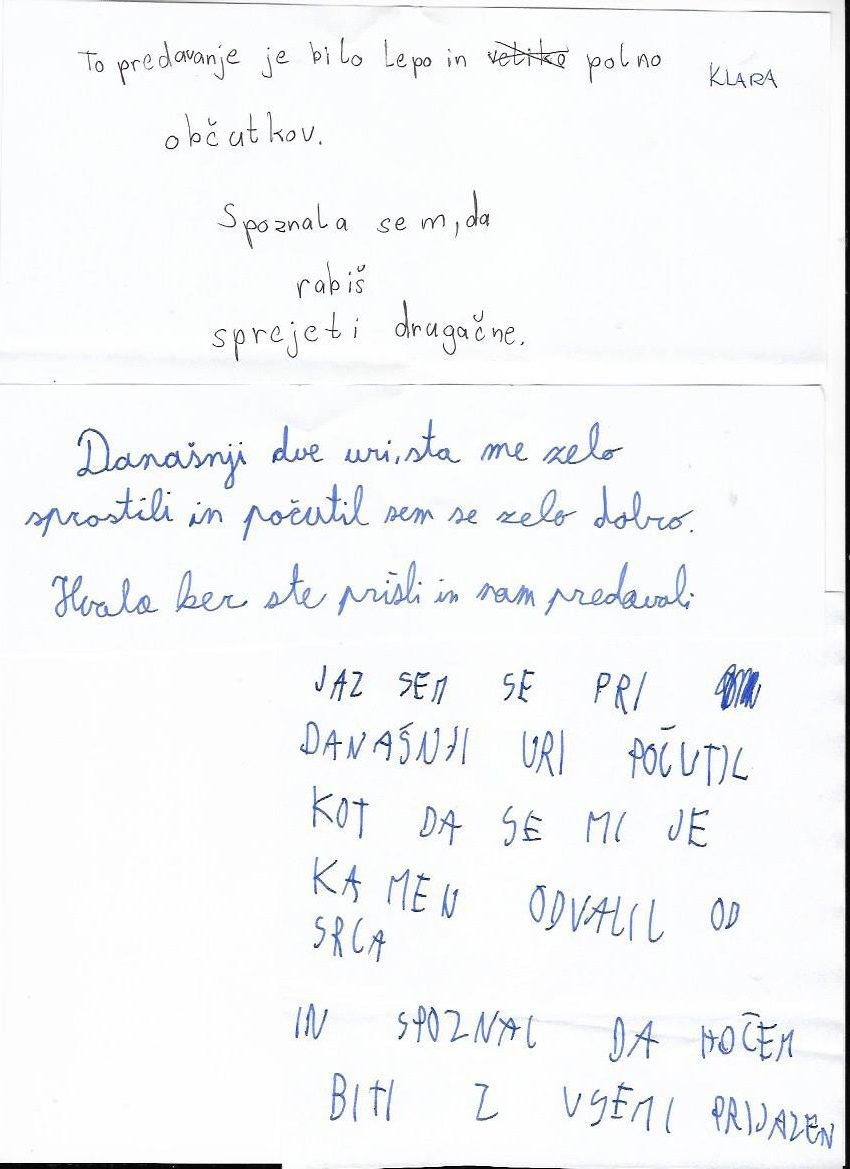 To predavanje je bilo lepo in polno KLARA
občutkov.
Spoznala sem, da
rabiš
sprejeti drugačne.
Današnji dve uri, sta me zelo
sprostili in počutil sem se zelo dobro.
Hvala ker ste prišli in nam predavali
JAZ SEM SE PRI
DANAŠNJI URI POČUTIL
KOT DA SE MI JE
KAMEN ODVALIL OD
SRCA
IN SPOZNAL DA HOČEM
BITI Z VSEMI PRIJAZEN